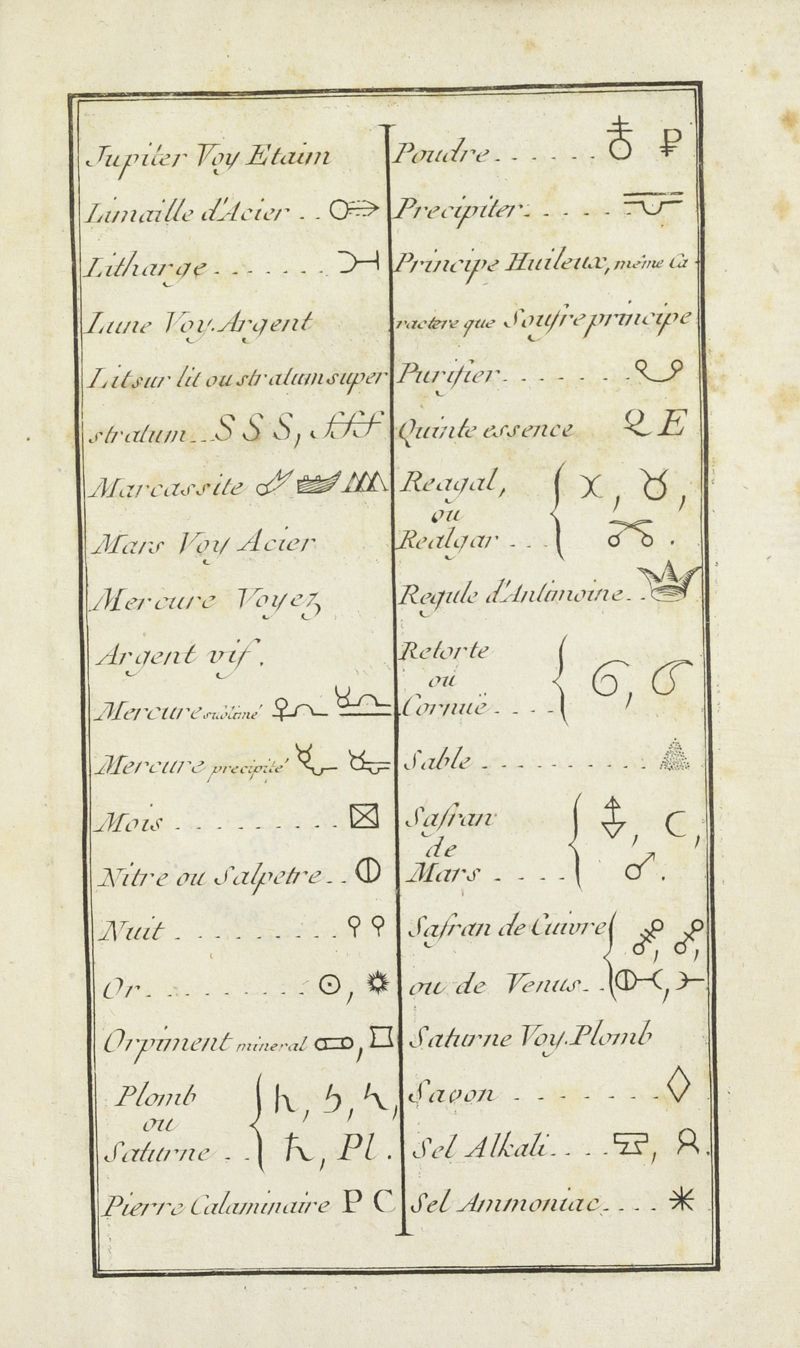 Jupiter Voy Etaim
Limaille d'Acier . .
Litharge . . . . . . .
Lune Voy. Argent
Lit sur lit ou stratum super
stratum . . S S S, fff
Marcassite
Mars Voy Acier
Mercure Voyez
Argent vif.
Mercure sublimé
Mercure precipité
Mois . . . . . . . . .
Nitre ou Salpetre . .
Nuit . . . . . . . . .
Or . . . . . . . . . ,
Orpiment mineral ,
Plomb
ou
Saturne . . , Pl.
Pierre Calaminaire P C
Poudre . . . . . .
Precipiter . . . . .
Principe Huileux, même Ca
ractere que Soufre principe
Purifier . . . . . . .
Quinte essence Q E
Reagal,
ou
Realgar . . .
Regule d'Antimoine . .
Retorte
ou
Cornuë . . . .
Sable . . . . . . . . . .
Safran
de
Mars . . . .
Safran de Cuivre
ou de Venus . .
Saturne Voy. Plomb
Savon . . . . . . .
Sel Alkali . . . .
Sel Ammoniac . . . .